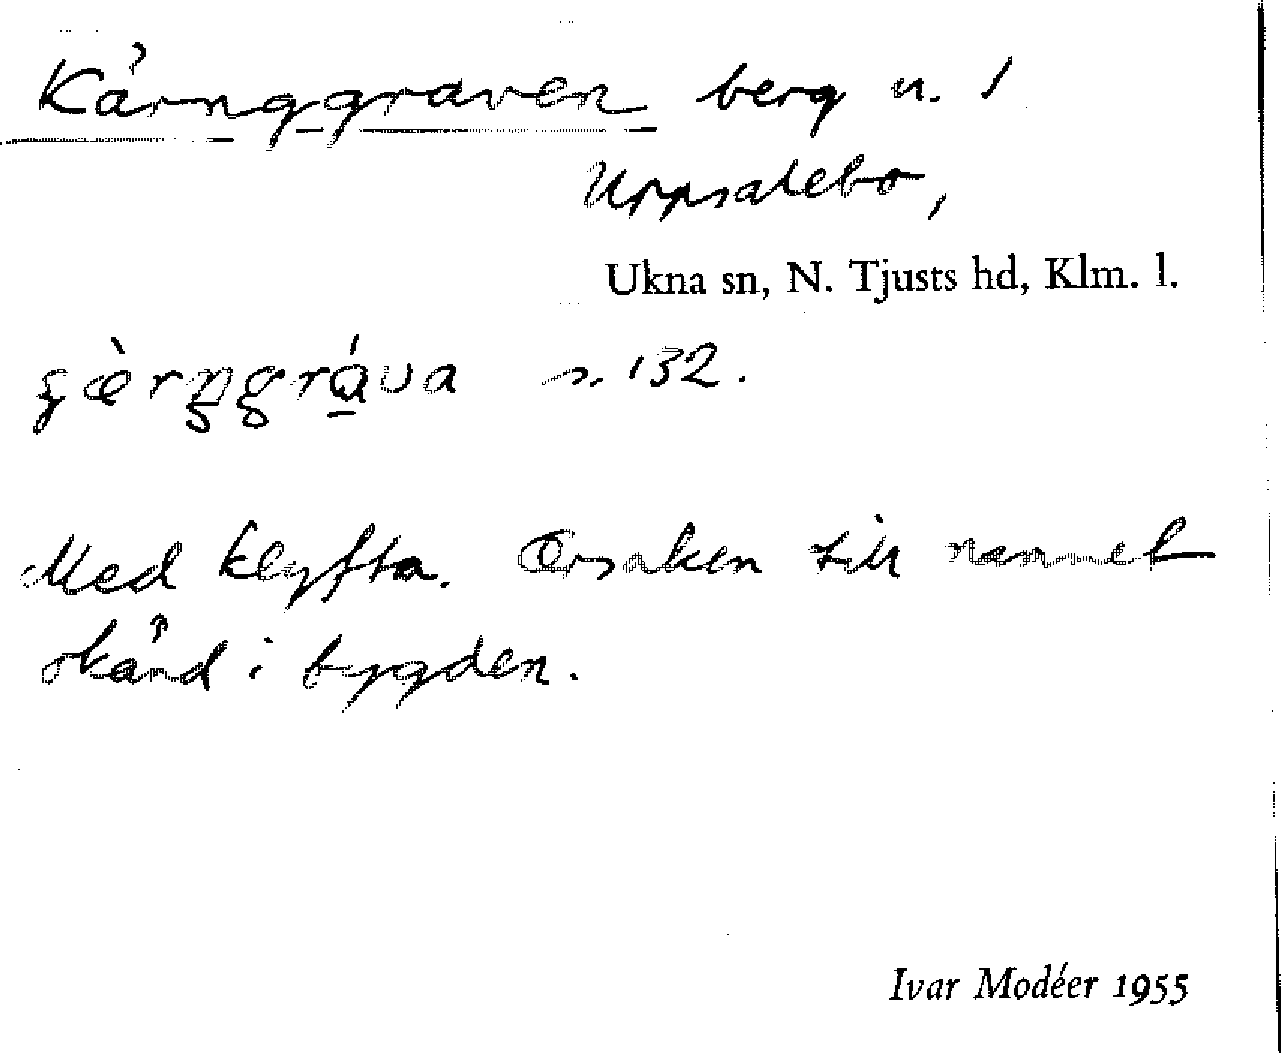 Kärnggraven berg n. 1
Uppsalebo,
Ukna sn, N. Tjusts hd, Klm. l.
s. 132.
Med klyfta. Orsaken till namnet
okänd i bygden.
Ivar Modéer 1955